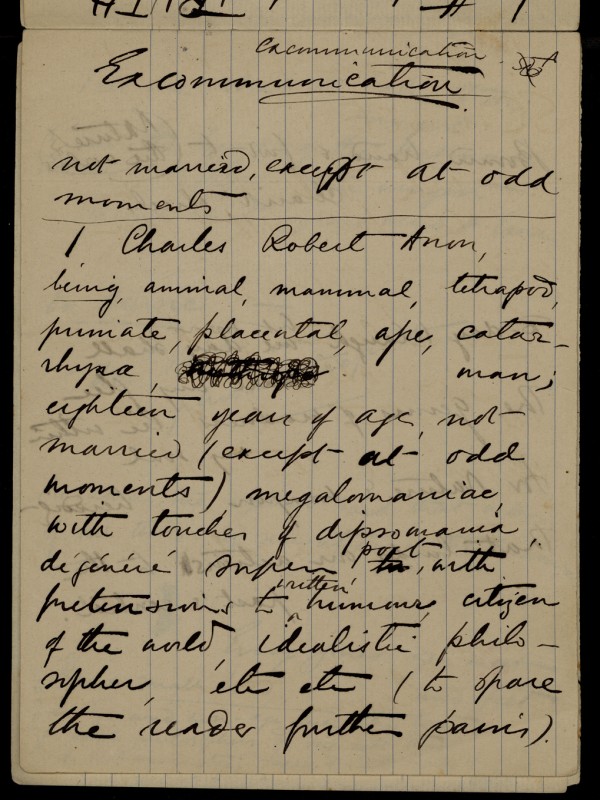 excommunication
Excommunication.
not married, except at odd
moments
I Charles Robert Anon,
being, animal, mammal, tetrapod,
primate, placental, ape, catar-
rhyna, man;
eighteen years of age, not
married (except at odd
moments), megalomaniac,
with touches of dipsomania,
dégénéré supérieur, poet, with
pretensions to written humour, citizen
of the world, idealistic philo-
sopher, etc etc (to spare
the reader further pains).